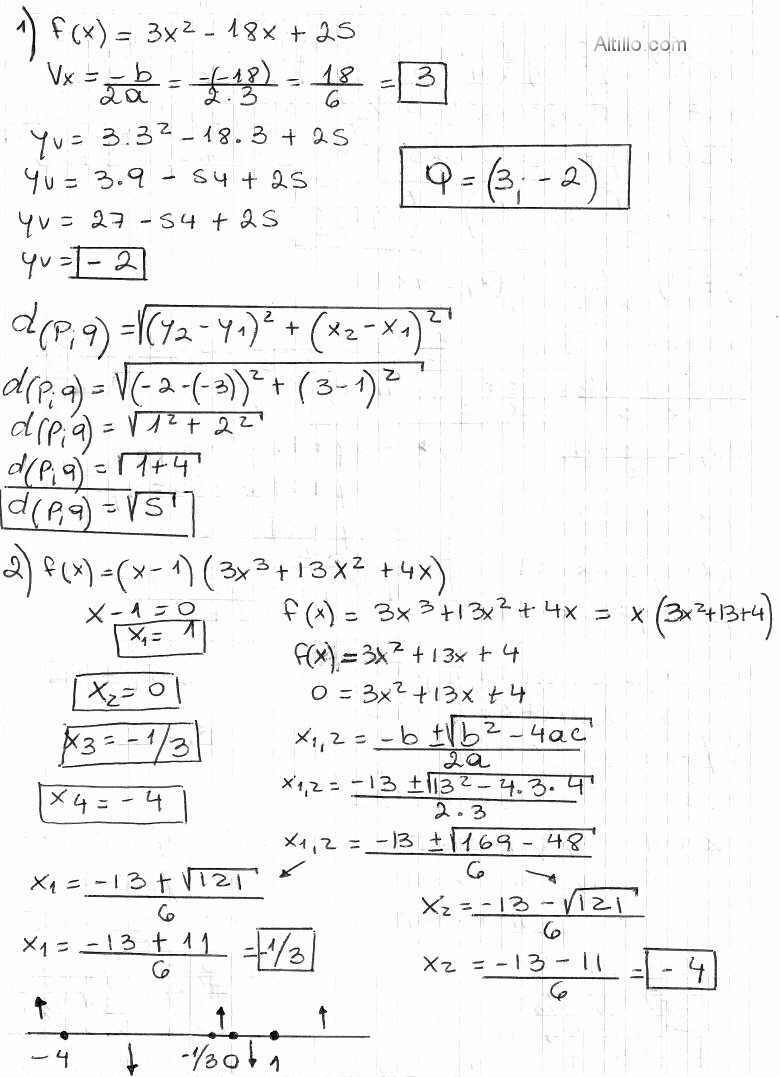 1) f(x) = 3x² - 18x + 25
Altillo.com
Vx = -b/2a = -(-18)/2.3 = 18/6 = 3
yv = 3.3² - 18.3 + 25
yv = 3.9 - 54 + 25
Q = (3; -2)
yv = 27 - 54 + 25
yv = -2
d(P;q) = √(y2 - y1)² + (x2 - x1)²
d(P;q) = √(-2-(-3))² + (3-1)²
d(P;q) = √1² + 2²
d(P;q) = √1+4
d(P;q) = √5
2) f(x) = (x-1) (3x³ + 13x² + 4x)
x - 1 = 0
x1 = 1
x2 = 0
x3 = -1/3
x4 = -4
f(x) = 3x³ + 13x² + 4x = x (3x²+13+4)
f(x) = 3x² + 13x + 4
0 = 3x² + 13x + 4
x1,2 = -b ± √b² - 4ac / 2a
x1,2 = -13 ± √13² - 4.3.4 / 2.3
x1,2 = -13 ± √169 - 48 / 6
x1 = -13 + √121 / 6
x1 = -13 + 11 / 6 = -1/3
x2 = -13 - √121 / 6
x2 = -13 - 11 / 6 = -4
-4 -1/3 0 1